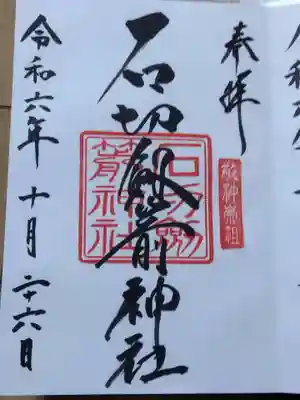 奉拝
石切劔箭神社
石切劔
箭神社
令和六年十月二十六日